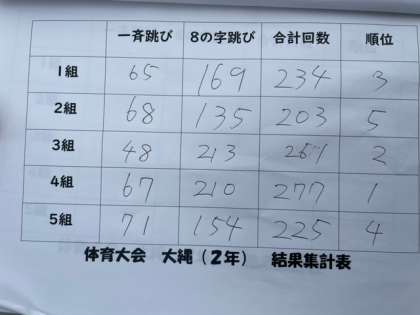 一斉跳び 8の字跳び 合計回数 順位
1組 65 169 234 3
2組 68 135 203 5
3組 48 213 261 2
4組 67 210 277 1
5組 71 154 225 4
体育大会 大縄(2年) 結果集計表